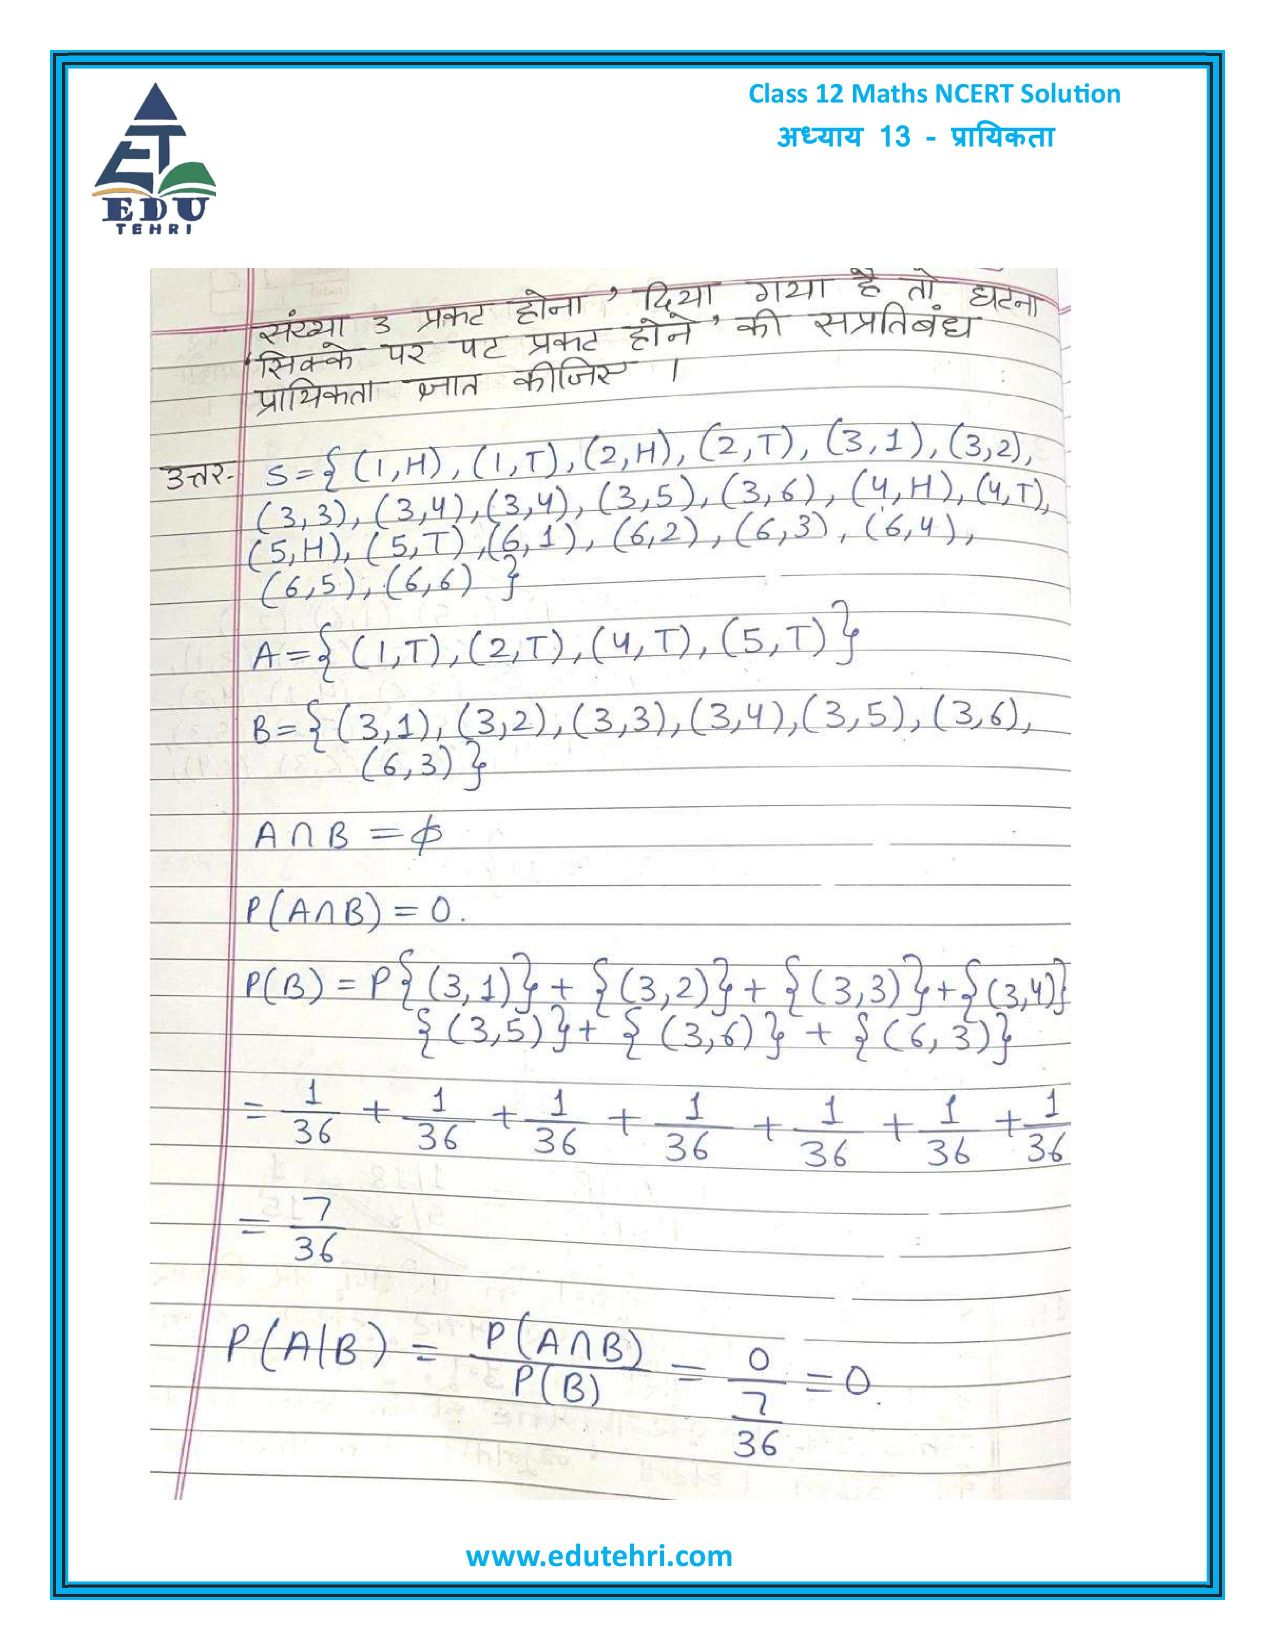 Class 12 Maths NCERT Solution
अध्याय 13 - प्रायिकता
EDU
TEHRI
संख्या 3 प्रकट होना' दिया गया है तो घटना
'सिक्के पर पट प्रकट होने' की सप्रतिबंध
प्रायिकता ज्ञात कीजिए ।
उत्तर- S={(1,H), (1,T), (2,H), (2,T), (3,1), (3,2),
(3,3), (3,4), (3,4), (3,5), (3,6), (4,H), (4,T),
(5,H), (5,T), (6,1), (6,2), (6,3), (6,4),
(6,5), (6,6) }
A={(1,T), (2,T), (4,T), (5,T)}
B={(3,1), (3,2), (3,3), (3,4), (3,5), (3,6),
(6,3)}
A∩B = ϕ
P(A∩B) = 0.
P(B) = P{(3,1)} + {(3,2)} + {(3,3)} + {(3,4)}
{(3,5)} + {(3,6)} + {(6,3)}
= 1/36 + 1/36 + 1/36 + 1/36 + 1/36 + 1/36 + 1/36
= 7/36
P(A|B) = P(A∩B)/P(B) = 0/(7/36) = 0.
www.edutehri.com